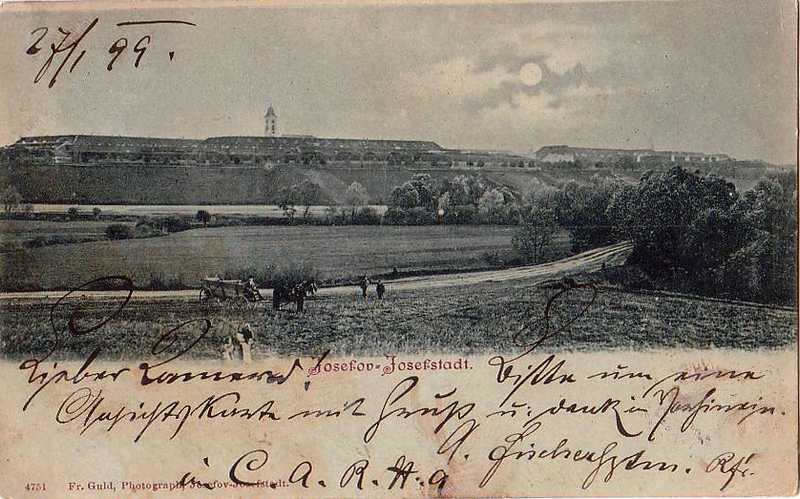 27/1 99.
Josefov-Josefstadt.
Lieber Kamerad! Bitte um eine
Ansichtskarte mit Gruß u. dank im
A. Fischer
in C. A. R. H. a
4751 Fr. Guld, Photograph, Josefov-Josefstadt.